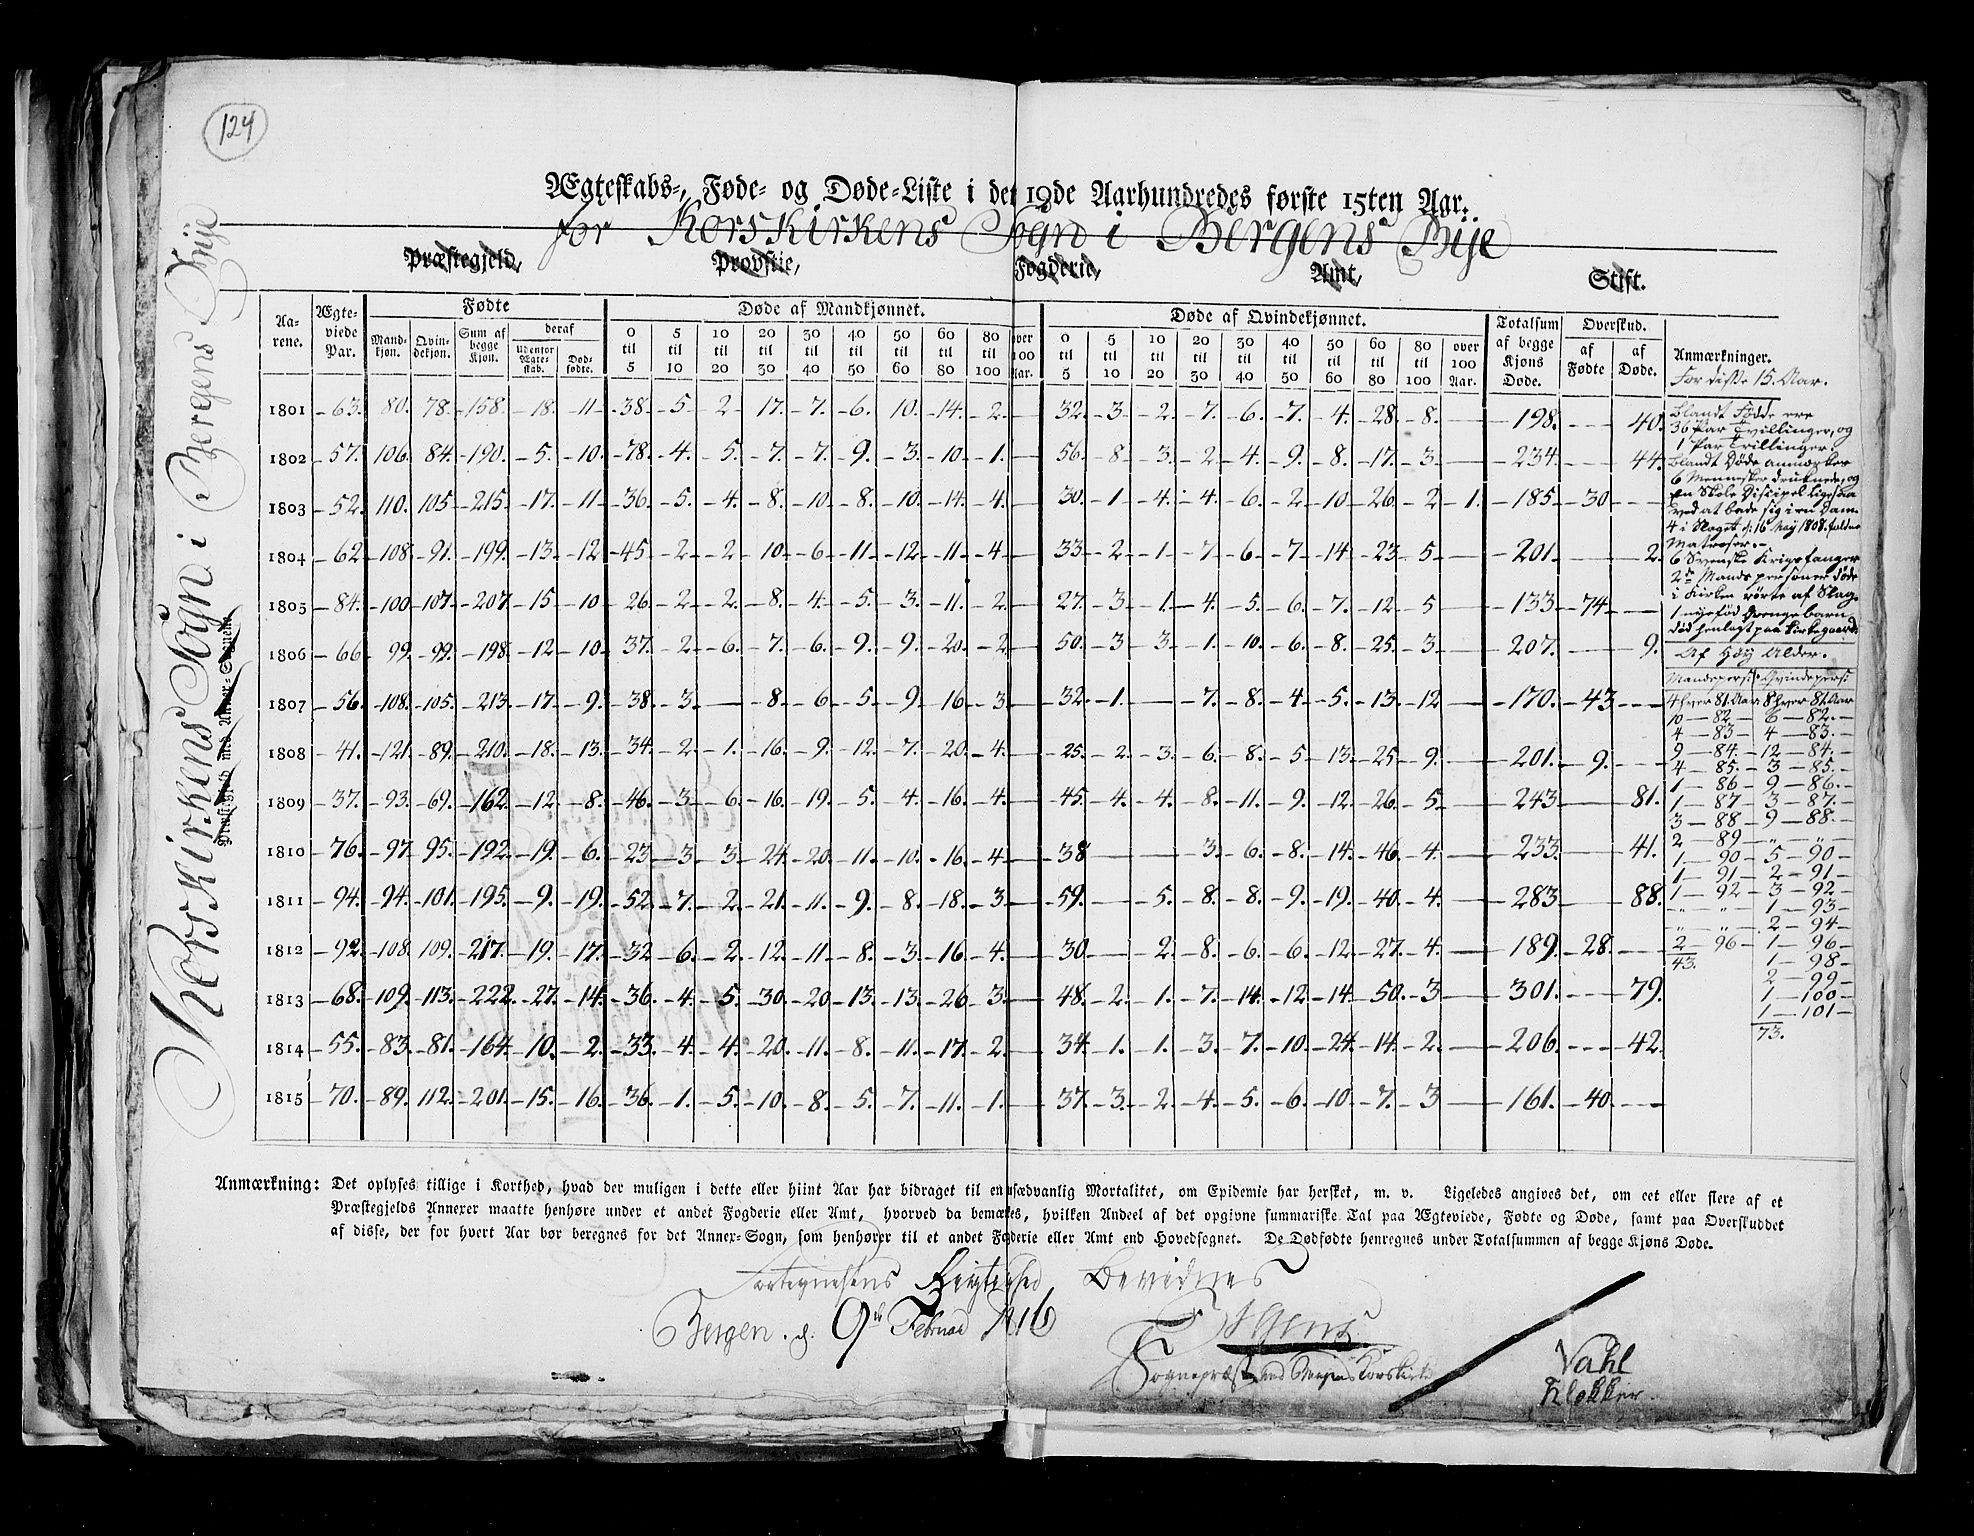 124
Ægteskabs-, Føde- og Døde-Liste i det 19de Aarhundredes første 15ten Aar.
for Korskirkens Sogn i Bergens Bije
Præstegjeld, Provstie, Fogderie, Amt, Stift.
Korskirkens Sogn i Bergens Bije
Præstegjeld med Annex-Sognene
Aarene. Ægteviede Par. Fødte Døde af Mandkjønnet. Døde af Qvindekjønnet. Totalsum af begge Kjøns Døde. Overskud. Anmærkninger.
Mandkjøn. Qvindekjøn. Sum af begge Kjøn. deraf Udenfor Ægteskab. Dødfødte. 0 til 5 5 til 10 10 til 20 20 til 30 30 til 40 40 til 50 50 til 60 60 til 80 80 til 100 over 100 Aar. 0 til 5 5 til 10 10 til 20 20 til 30 30 til 40 40 til 50 50 til 60 60 til 80 80 til 100 over 100 Aar. af Fødte af Døde.
1801 – 63. 80. 78. –158. –18. –11 –38. –5 –2 17. –7. –6. 10. –14. –2. — 32. –3 –2. –7. –6. –7. –4. –28. –8. — –198. — 40.
1802 – 57. 106. 84. –190. –5. –10. –78. –4. –5. –7. –7. –9. –3. –10. –1. — 56. –8. –3. –2. –4. –9. –8. –17. –3. — –234. — 44.
1803 – 52. 110. 105 –215. –17. –11 –36. –5. –4. –8. –10. –8. –10. –14. –4. — 30. –1 –4. –4. –6. –2. –10. –26. –2 –1. –185. –30 —
1804 – 62. –108. –91. –199. –13. –12 –45. –2. –2 10. –6 –11. –12. –11. –4. — 33. –2 –1 –7. –6. –7. –14. –23. –5. — –201. — 2.
1805 – 84. –100 –107. –207. –15 –10 –26. –2. –2. –8. –4. –5. –3. –11. –2. — 27. –3 –1. –4. –5. –6. –7. –12. –5 — –133 –74. —
1806 – 66 –99. –99. –198. –12 –10. –37. –2 –6. –7. –6. –9. –9. –20. –2 — 50. –3 3. –1. –10. –6. –8. –25. –3. — –207. — 9.
1807 – 56. –108. –105. –213. –17. –9. –38. –3. — –8. –6 –5. –9. 16. –3 — –32. –1. — –7. –8. –4. –5. –13. –12 — –170. –43. —
1808 – 41. –121. –89. –210. –18. –13. –34. –2. –1. –16. –9. –12. –7. –20. –4. — –25. –2. –3. –6. –8. –5 –13. –25 –9. — –201. –9. —
1809 – 37. –93. –69. –162. –12. –8. –46. –3. –6. –16. –19. –5. –4. –16. –4. — –45. –4. –4. –8. –11. –9. –12. –26. –5. — –243. — 81.
1810 – 76. –97. 95. –192. –19. –6. –23 –3 –3. –24. –20. –11. –10. –16. –4. — –38 — — –3. –6. –8. –14. –46. –4. — –233. — 41.
1811 – 94. –94. –101. –195. –9. –19. –52. –7. –2. –21. –11. –9. –8. –18. –3. — –59. — –5. –8. –8. –9. –19. –40. –4. — –283. — 88.
1812 – 92. –108. 109. –217. –19. –17. –32 –6. –2. –12. –11. –8. –3. –16. –4. — –30 — –2. –8. –6. –6. –12. –27. –4. — –189. –28. —
1813 – 68. –109. –113. –222. –27. –14. –36. –4. –5. –30. –20 –13. –13. –26 –3. — –48. –2. –1. –7. –14. –12. –14 –50. –3 — –301. — 79.
1814 – 55. –83. –81. –164. –10. –2. –33. –4. –4. –20. –11. –8. –11. –17. –2. — 34. –1. –1. –3. –7. –10. –24. –14. –2. — –206. — 42.
1815 – 70. –89. 112. –201. –15. –16. –36. –1. –5. –10. –8. –5. –7. –11. –1. — 37. –3. –2. –4. –5. –6. –10. –7. –3 — –161. –40. —
For disse 15. Aar.
blandt Fødde ere
36 Par Tvillinger, og
1 Par Trillinger.
blandt Døde anmærkes
6 Mennesker druknede, og
En Skole Discipel ligesaa
ved at bade sig i en Dam.
4 i Slaget d: 16 Maij 1808. faldne
Matroser. –
6 Svenske Krigsfanger
2de Mands personer døde
i Kirken rørte af Slag.
1 nyefød Drengebarn
død henlagt paa Kirkegaard.
Af Høy Alder.
Mandspers: Qvindepers:
4 hver 81. Aar 8 hver 81. Aar
10 – 82. – 6 – 82. –
4 – 83 – 4 – 83. –
9 – 84. – 12 – 84. –
4 – 85. – 3 – 85. –
1 – 86 – 9 – 86. –
1 – 87 3 – 87. –
3 – 88 – 9 – 88. –
2 – 89 – „ – „ –
1. – 90 – 5 – 90 –
1 – 91 – 2 – 91 –
1 – 92 – 3 – 92 –
„ – „ – 1 – 93 –
„ – „ – 2 – 94 –
2 – 96 – 1 – 96 –
43. 1 – 98 –
2 – 99 –
1 – 100 –
1 – 101 –
73.
Anmærkning: Det oplyses tillige i Korthed, hvad der muligen i dette eller hiint Aar har bidraget til en usædvanlig Mortalitet, om Epidemie har hersket, m. v. Ligeledes angives det, om eet eller flere af et
Præstegjelds Annexer maatte henhøre under et andet Fogderie eller Amt, hvorved da bemærkes, hvilken Andeel af det opgivne summariske Tal paa Ægteviede, Fødte og Døde, samt paa Overskuddet
af disse, der for hvert Aar bør beregnes for det Annex-Sogn, som henhører til et andet Fogderie eller Amt end Hovedsognet. De Dødfødte henregnes under Totalsummen af begge Kjøns Døde.
Fortegnelsens Rigtighed Bevidnes
Bergen. d: 9de Februar 1816
Sognepræst ved Korskirke
Vahl
Klokker.